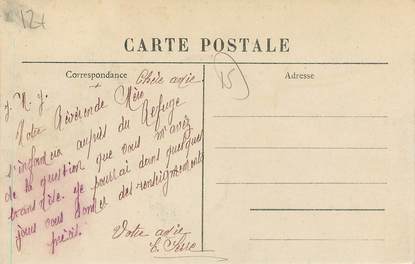 12+
CARTE POSTALE
Correspondance
Adresse
15
Chère amie
J. M. J.
Notre Révérende Mère
s'informera auprès du Refuge
de la question que vous m'avez
transmise. Je pourrai dans quelques
jours vous donner des renseignements
précis.
Votre amie